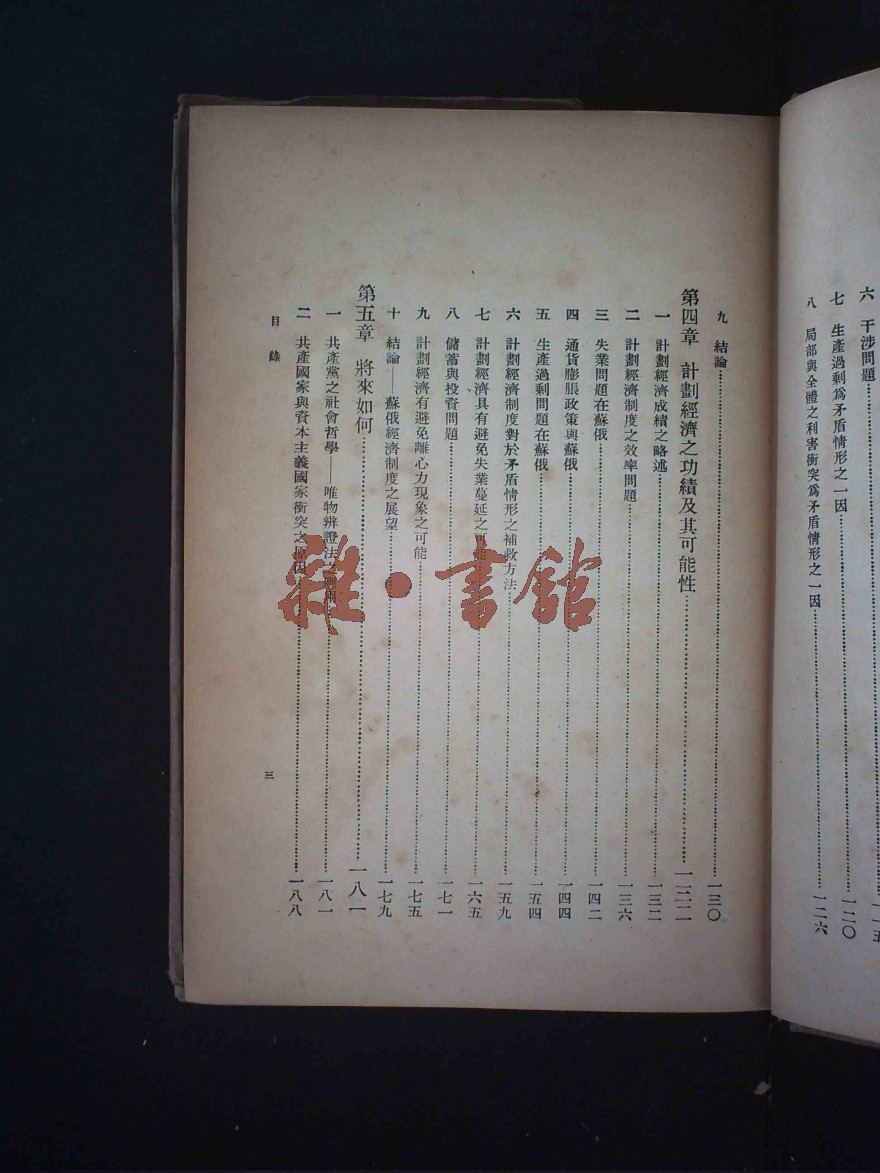 六 干涉問題
七 生產過剩爲矛盾情形之一因……一二〇
八 局部與全體之利害衝突爲矛盾情形之一因……一二六
九 結論……一三〇
第四章 計劃經濟之功績及其可能性……一三二
一 計劃經濟成績之略述……一三二
二 計劃經濟制度之效率問題……一三六
三 失業問題在蘇俄……一四二
四 通貨膨脹政策與蘇俄……一四四
五 生產過剩問題在蘇俄……一五四
六 計劃經濟制度對於矛盾情形之補救方法……一五九
七 計劃經濟具有避免失業蔓延之可能……一六五
八 儲蓄與投資問題……一七一
九 計劃經濟有避免離心力現象之可能……一七五
十 結論——蘇俄經濟制度之展望……一七九
第五章 將來如何……一八一
一 共產黨之社會哲學——唯物辨證法之……一八一
二 共產國家與資本主義國家衝突之原因……一八八
目錄
三
雜·書館